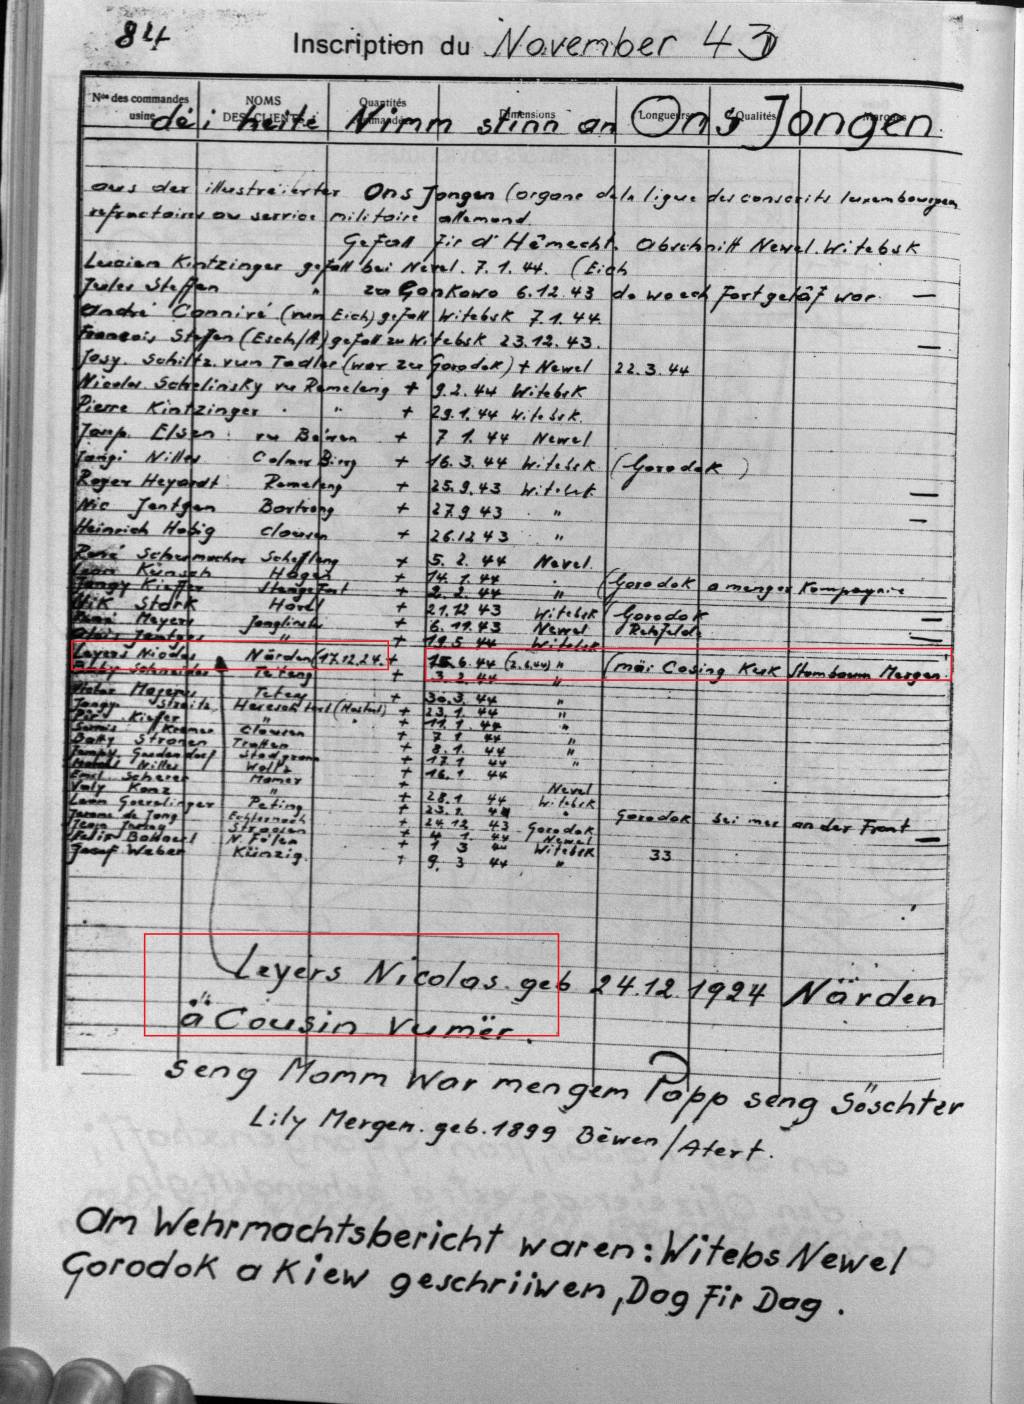 84
Inscription du November 43
Nos des commandes usine NOMS DES CLIENTS Quantités Dimensions Longueurs Qualités
déi heite Nimm stinn an Ons Jongen.
aus der illustréierter Ons Jongen (organe de la ligue des conscrits luxembourgeois
refractaires au service militaire allemand.
Gefall fir d'Hémecht. Abschnitt Newel. Witebsk
Lucien Kintzinger gefall bei Newel. 7.1.44. (Eich
Jules Steffen " zu Gorkowo 6.12.43 do wo ech fortgeläf war. —
André Conniré (vun Eich) gefall Witebsk 7.1.44.
Francois Steffen (Esch/A) gefall zu Witebsk 23.12.43. —
Josy. Schiltz. vun Tadler (war zu Gorodok) + Newel 22.3.44
Nicolas Schelinsky vu Remeleng + 9.2.44 Witebsk
Pierre Kintzinger " + 29.1.44 Witebsk.
Josep. Elsen vu Beiren + 7 1. 44 Newel
Jangi Nilles Colmer Bierg + 16.3.44 Witebsk (Gorodok)
Roger Heyardt Remeleng + 25.9.43 Witebsk —
Nic Jentgen Bartreng + 27.9 43 " —
Heinrich Habig Clausen + 26.12 43 "
René Schumacher Scheffleng + 5. 2. 44 Newel.
Leon Künsch Hagen + 14. 1. 44 " (Gorodok a menger Kompagnie
Jangy Kieffer Stengefort + 2. 2. 44 "
Nik Stork Harel + 21.12 43 Witebsk (Gorodok
Meyers Jonglinster + 6. 11. 43 Newel —
Alois Jentges " + 19.5 44 Witebsk —
Leyers Nicolas Närden (17.12.24. + 15.6.44 (2.6.44) " (mäi Cosing Kuk Stambaum Mergen.
Schneider Teteng + 3. 2. 44 "
Victor Majerus Teteng + 30.3. 44 "
Jangy Streitz Hereschtert (Nostert) + 23.1. 44 "
Pir Kiefer " + 11.1. 44 "
Kremer Clausen + 7 1 44 "
Batty Stronen Tratten + 8.1. 44 "
Jempy Gardendorf Stadgronn + 17.1 44 "
Marcel Nilles Woltz + 16.1 44
Emil Scherer Mamer +
Valy Konz " + 28.1 44 Newel
Leon Goerelinger Peting + 23.1. 44 Witebsk
Jerome de Jong Echternach + 24 12. 43 " Gorodok bei mer an der Front
Stroossen + 4 1. 44 Gorodok —
Felix Bohnert N. Fölen + 1 3 44 Newel
Josef Weber Künzig. + 9. 3 44 Witebsk 33
Leyers Nicolas. geb 24.12.1924 Närden
ä Cousin vumër.
seng Mamm war mengem Papp seng Söschter
Lily Mergen. geb. 1899 Béwen/Atert.
Am Wehrmachtsbericht waren: Witebs Newel
Gorodok a Kiew geschriiwen, Dag fir Dag.